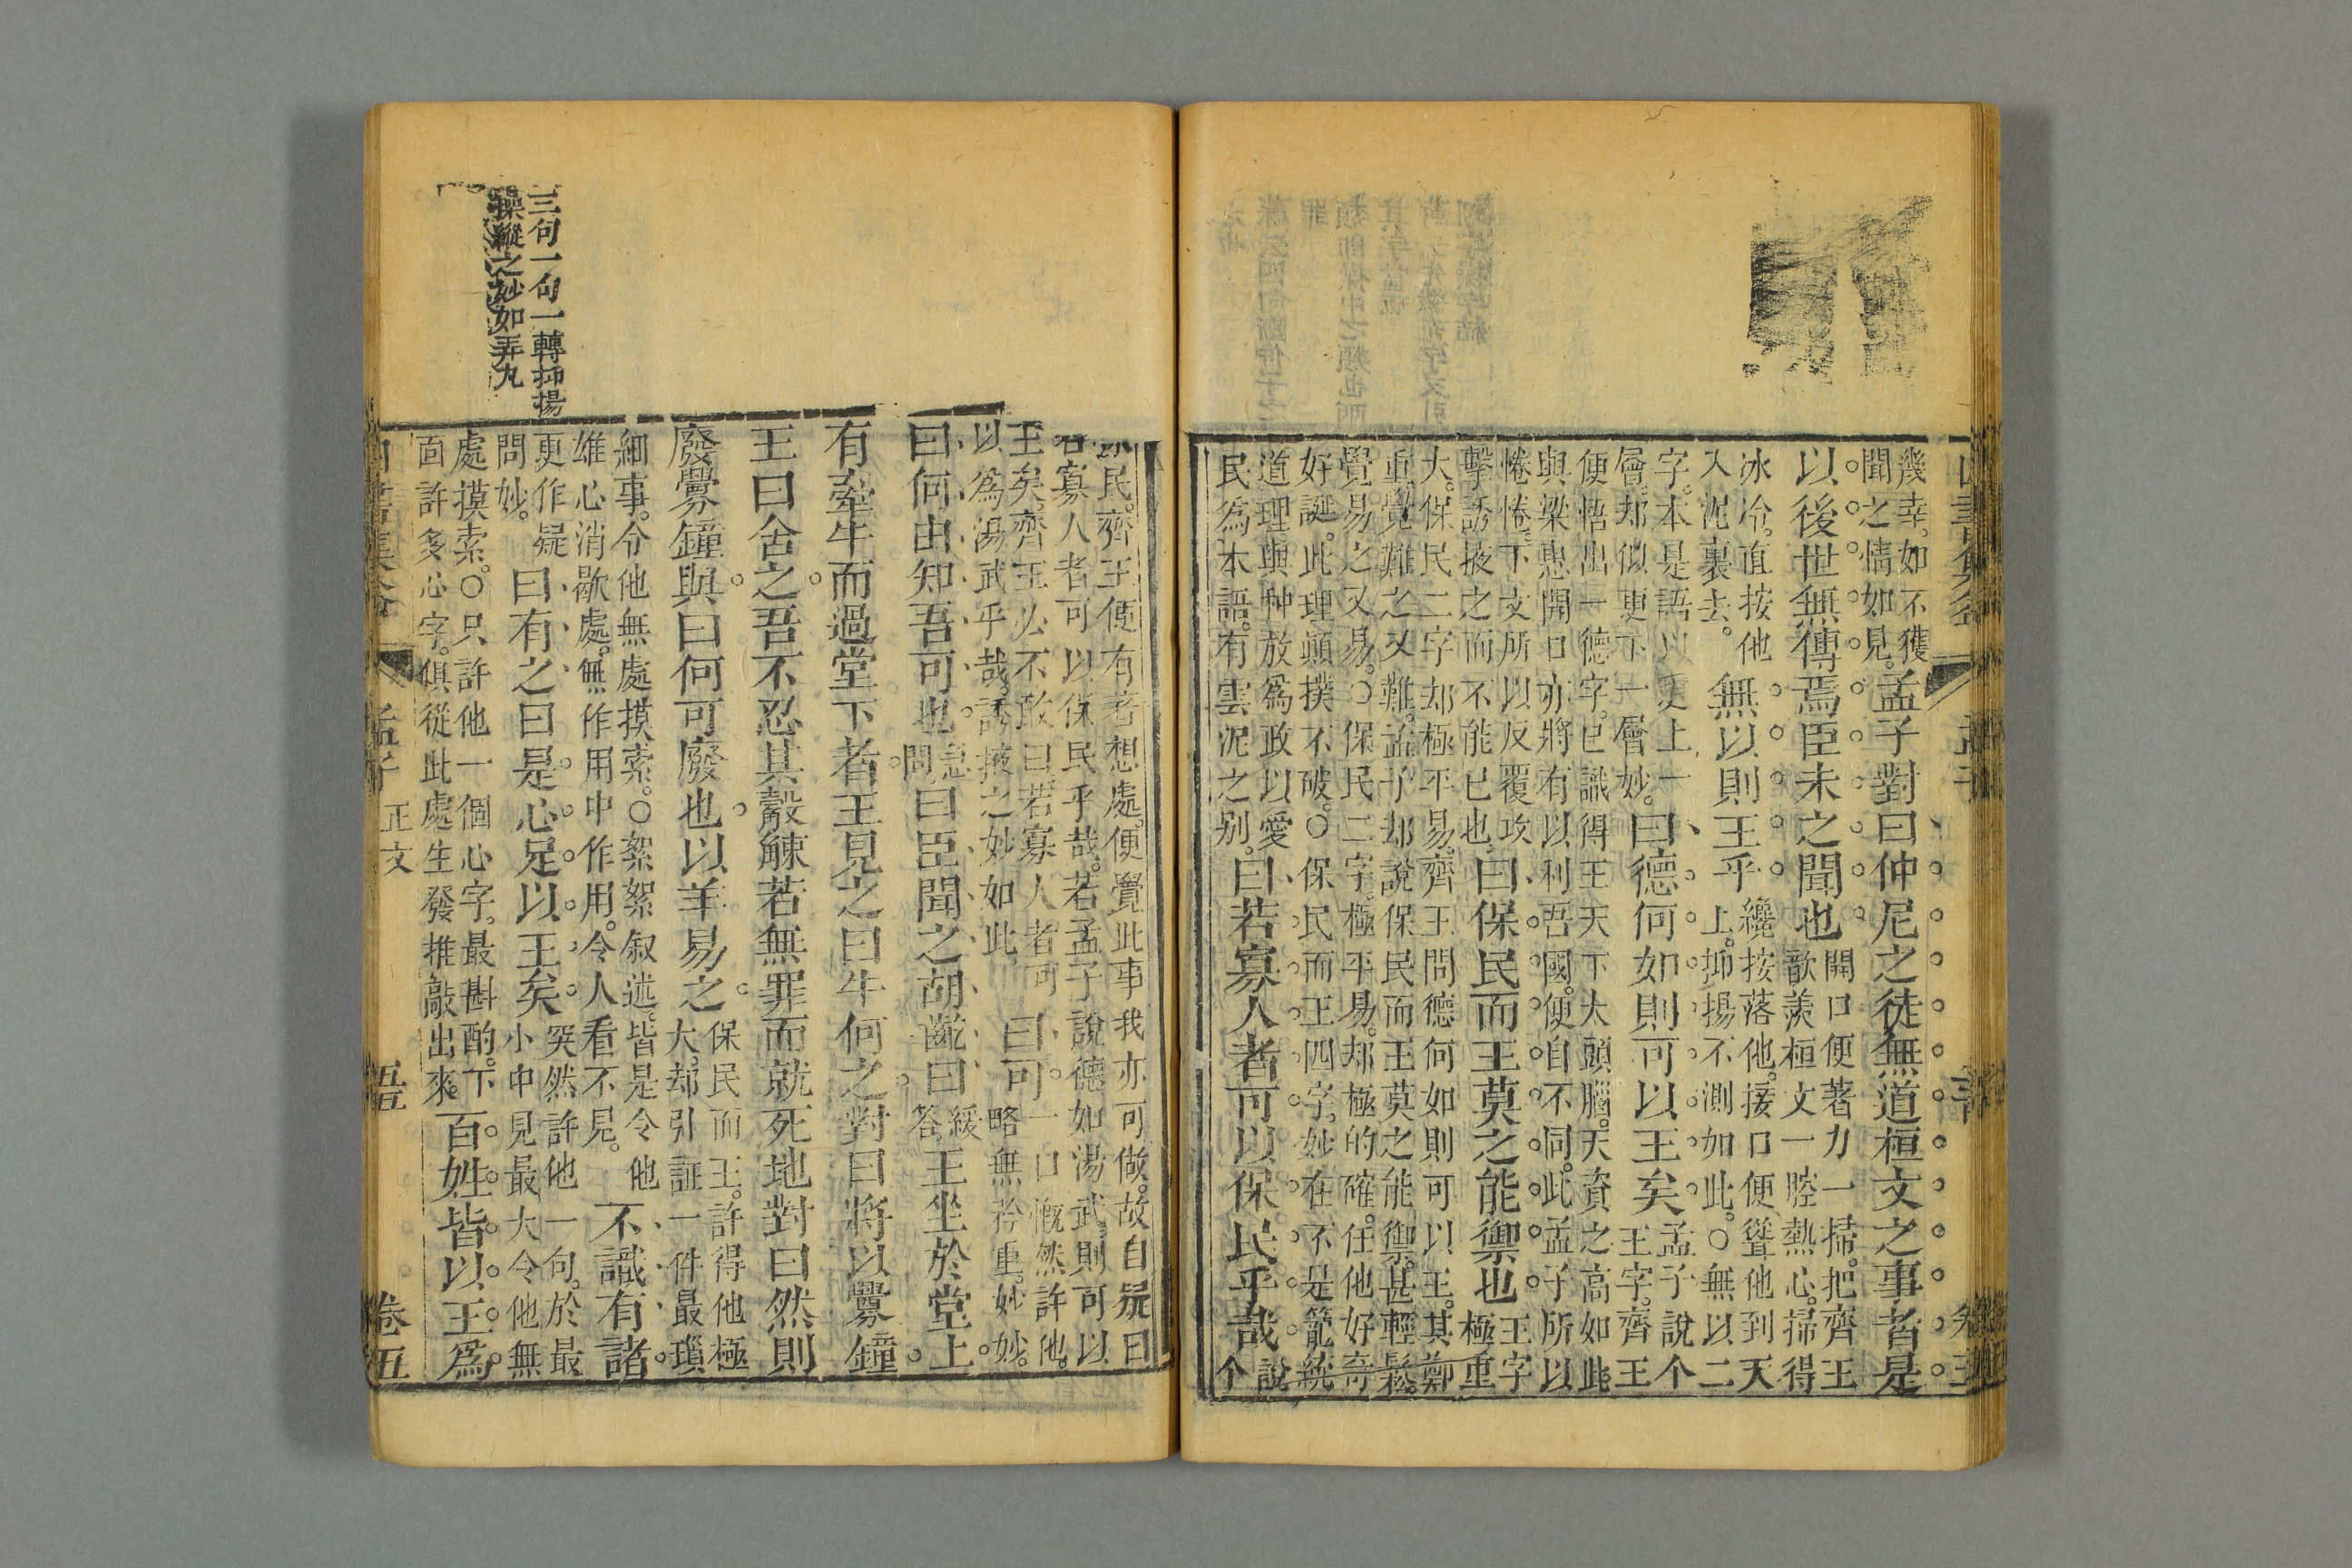 幾幸。如不獲
聞之情如見。孟子對曰仲尼之徒無道桓文之事者是
以後世無傳焉臣未之聞也開口便著力一掃。把齊王
歆羨桓文一腔熱心。掃得
冰冷。直按他
入泥裏去。無以則王乎纔按落他。接口便聳他到天
上。抑揚不測如此。○無以二
字。本是語以更上一
層。却似更下一層妙。曰德何如則可以王矣孟子說个
王字。齊王
便悟出一德字。已識得王天下大頭腦。天資之高如此
與梁惠開口亦將有以利吾國。便自不同。此孟子所以
惓惓。下文所以反覆攻
擊誘掖之而不能已也曰保民而王莫之能禦也王字
極重
大。保民二字却極平易。齊王問德何如則可以王。其鄭
重覺難之又難。孟子却說保民而王莫之能禦。甚輕鬆。
覺易之又易。○保民二字。極平易。却極的確。任他好奇
好誕。此理顛撲不破。○保民而王四字。妙在不是籠統
道理與种放爲政以愛
民爲本語。有雲泥之别。曰若寡人者可以保民乎哉說
个
民。齊王便有著想處。便覺此事我亦可做。故自疑曰
若寡人者可以保民乎哉。若孟子說德如湯武。則可以
王矣。齊王必不敢曰若寡人者可
以爲湯武乎哉。誘掖之妙如此曰可一口慨然許他。
略無矜重。妙妙。
曰何由知吾可也急
問曰臣聞之胡齕曰緩
答王坐於堂上
有牽牛而過堂下者王見之曰牛何之對曰將以釁鐘
王曰舍之吾不忍其觳觫若無罪而就死地對曰然則
廢釁鐘與曰何可廢也以羊易之保民而王。許得他極
大。却引証一件最瑣
細事。令他無處摸索。○絮絮叙述。皆是令他
雄心消歇處。無作用中作用。令人看不見。不識有諸
更作疑
問妙。曰有之曰是心足以王矣突然許他一句。於最
小中見最大令他無
處摸索。○只許他一個心字。最斟酌。下
面許多心字。俱從此處生發推敲出來。百姓皆以王爲
孟子
正文
五
卷五
三句一句一轉抑揚
操縱之妙如弄丸